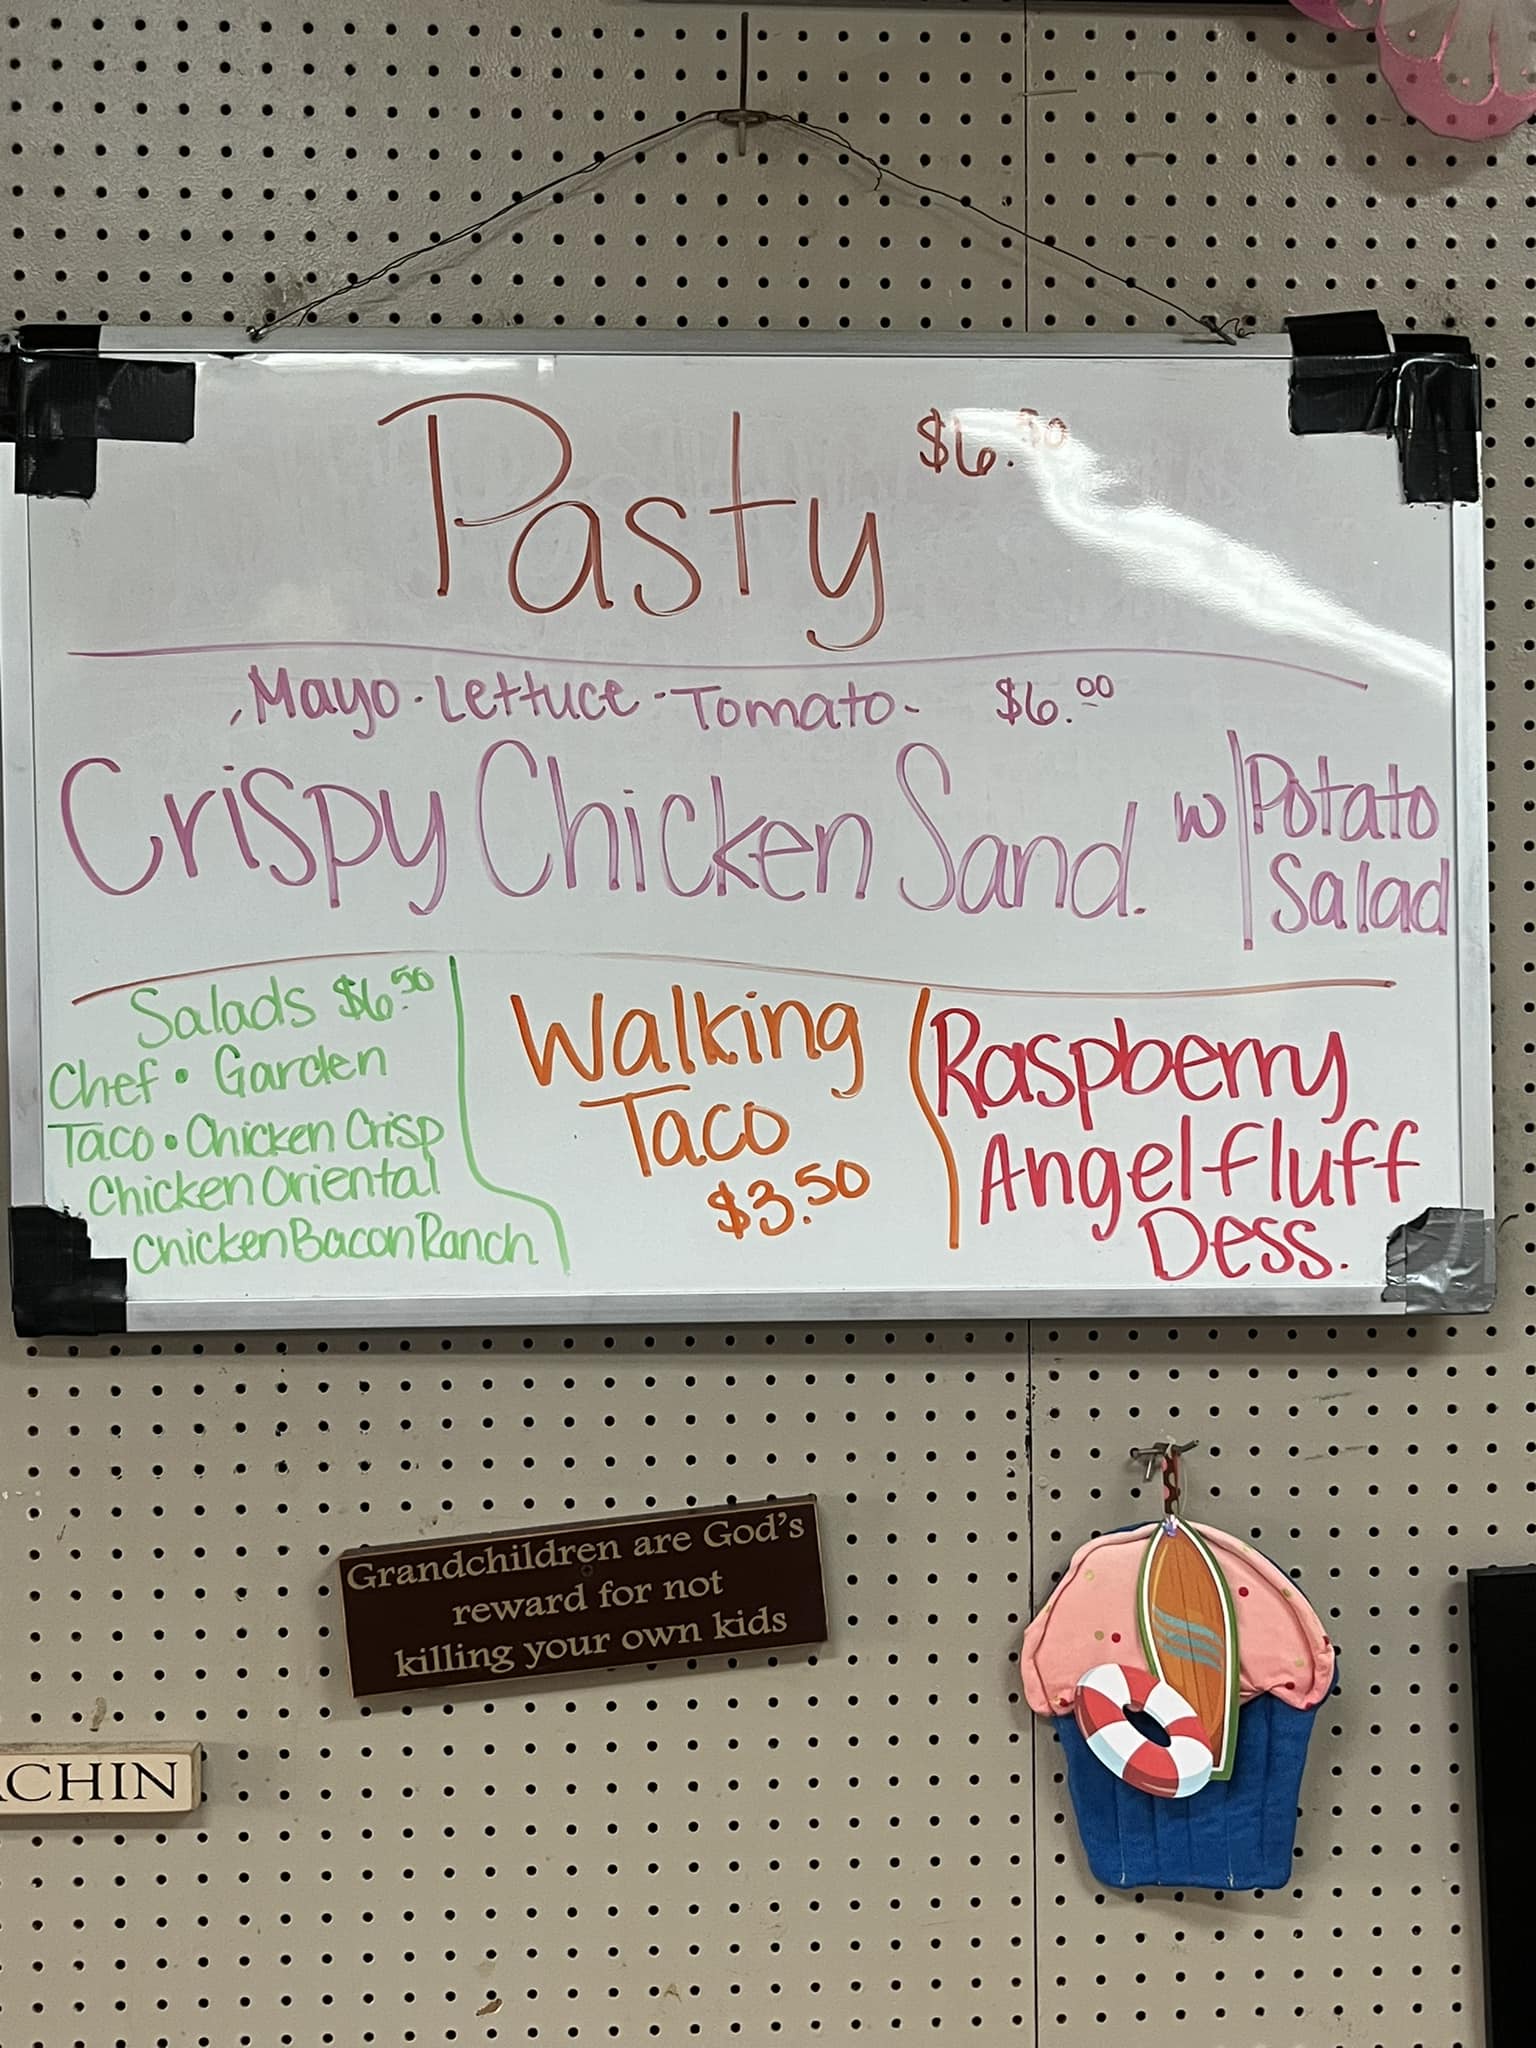 Pasty $6.50
Mayo · Lettuce · Tomato - $6.00
Crispy Chicken Sand. w/ Potato
Salad
Salads $6.50
Chef • Garden
Taco • Chicken Crisp
Chicken Oriental
Chicken Bacon Ranch
Walking
Taco
$3.50
Raspberry
Angel fluff
Dess.
Grandchildren are God's
reward for not
killing your own kids
CHIN